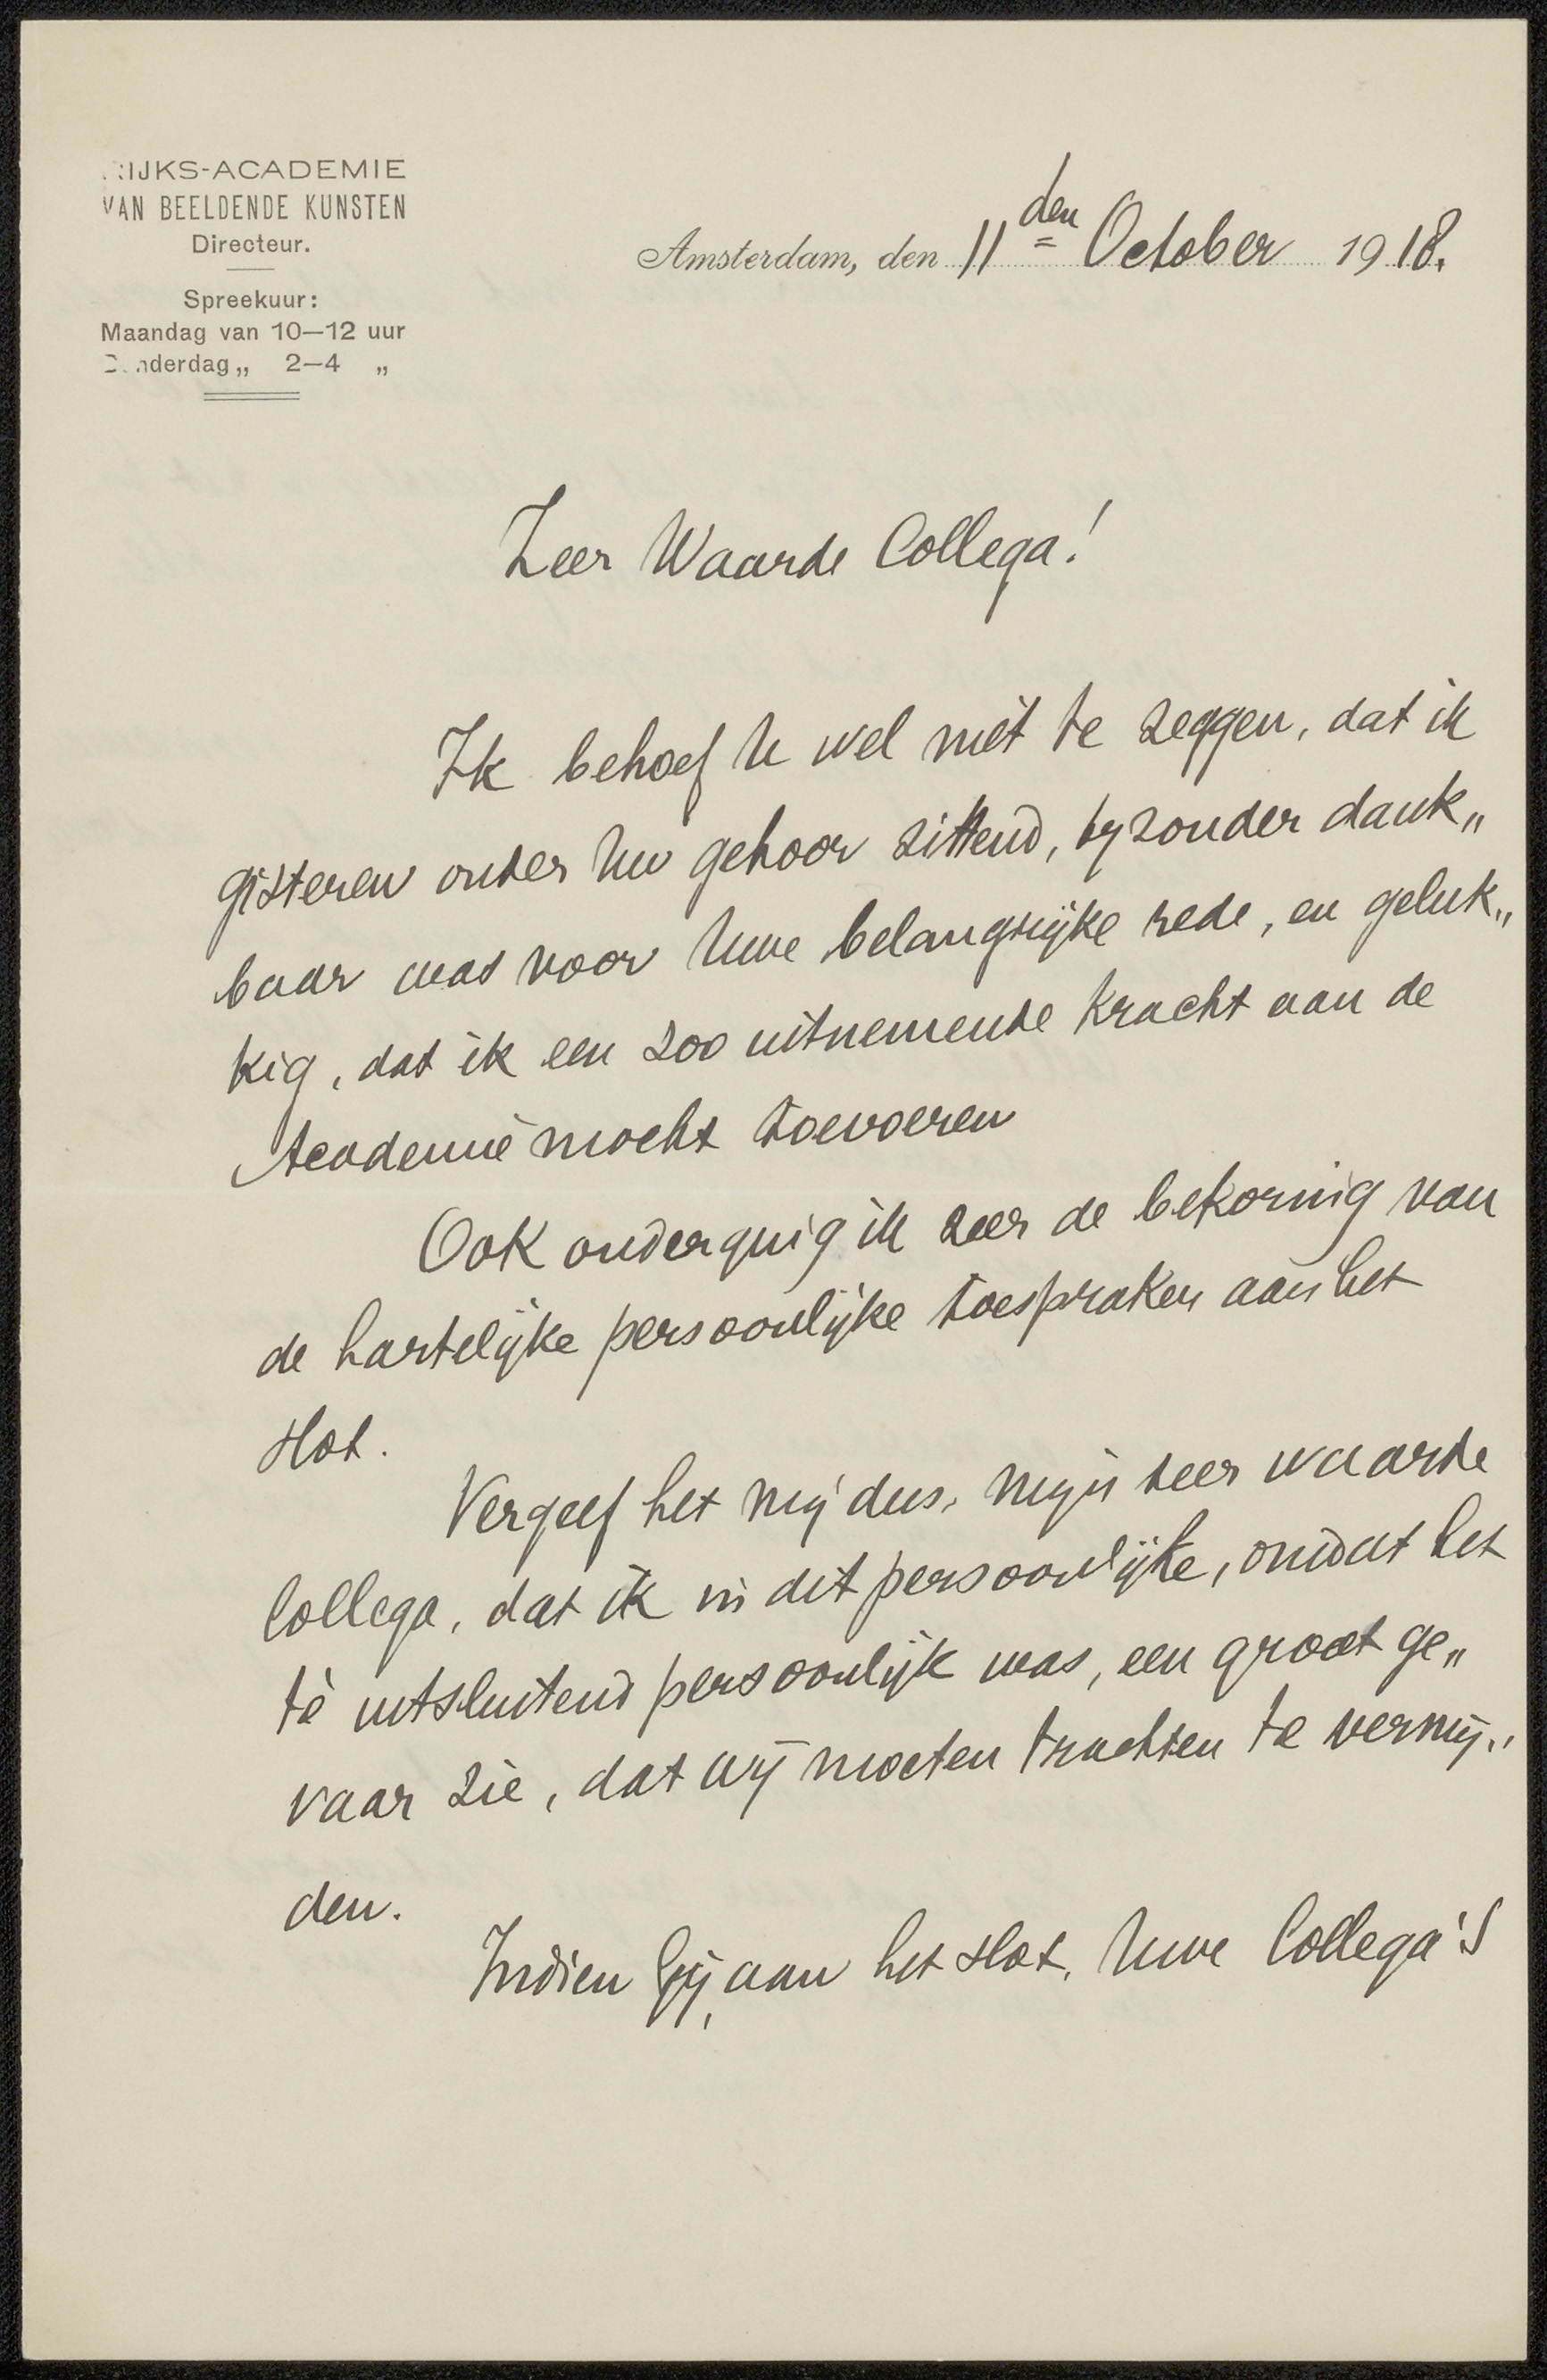 RIJKS-ACADEMIE
VAN BEELDENDE KUNSTEN
Directeur.
Spreekuur:
Maandag van 10—12 uur
Donderdag „ 2—4 „
Amsterdam, den 11den October 1918.
Zeer Waarde Collega!
Ik behoef U wel niet te zeggen, dat ik
gisteren onder Uw gehoor zittend, byzonder dank„
baar was voor Uwe belangrijke rede, en geluk„
kig, dat ik een zoo uitnemende kracht aan de
Academie mocht toevoeren
Ook onderging ik zeer de bekoring van
de hartelijke persoonlijke toespraken aan het
slot.
Vergeef het mij dus, mijn zeer waarde
Collega, dat ik in dit persoonlijke, omdat het
tè uitsluitend persoonlijk was, een groot ge„
vaar zie, dat wij moeten trachten te vermij„
den.
Indien Gij, aan het slot, Uwe Collega's